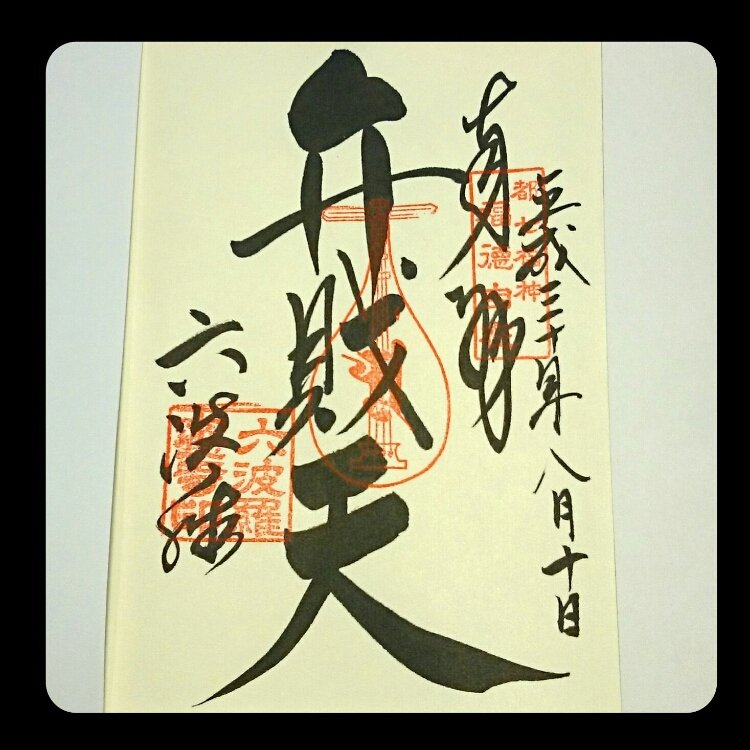 平成三十年八月十日
奉拝
都七福神
弁財天
六波
六波羅
蜜寺印